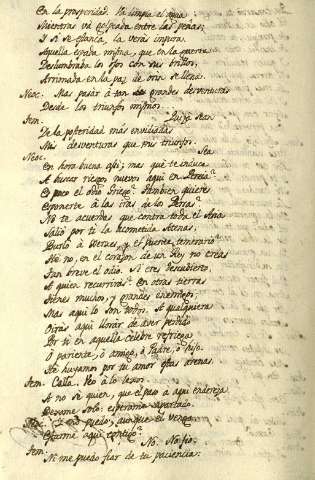 En la prosperidad. ya limpia el agua
Mientras vá golpeada entre las peñas;
Y si se estanca, la verás impura.
Aquella espada misma, que en la guerra
Deslumbraba los ojos con sus brillos,
Arrimada en la paz de orin se llena.
Neoc. Mas pasár á tan grandes desventuras
Desde los triunfos mismos.
Tem. Quizá sean
De la posteridad más envidiadas
Mis desventuras que mis triunfos.
Neoc. Sea
En hora buena así; mas qué te induce
A buscar riesgos nuevos aqui en Persia?
Es poco el odio Griego? Tambien quieres
Esponerte á las iras de los Persas?
No te acuerdas que contra toda el Asia
Salió por ti la acometida Atenas,
Burló á Xerxes, y el puente temerario?
No, no, en el corazon de un Rey no creas
Tan breve el odio. Si eres descubierto,
A quien recurrirás? En otras tierras
Tienes muchos, y grandes enemigos;
Mas aquí lo son todos. A qualquiera
Oirás aquí llorar de aver perdido
Por ti en aquella célebre refriega
O pariente, ó amigo, ó Padre, ó hijo.
Ah huyamos por tu amor estas arenas.
Tem. Calla. Veo á lo lexos
A no sé quien, que el paso á aqui endereza
Dexame solo: esperame apartado.
no puedo; aunque el venga
Estarme aqui contigo?
Tem. No. No fio:
Ni me puedo fiar de tu paciencia: